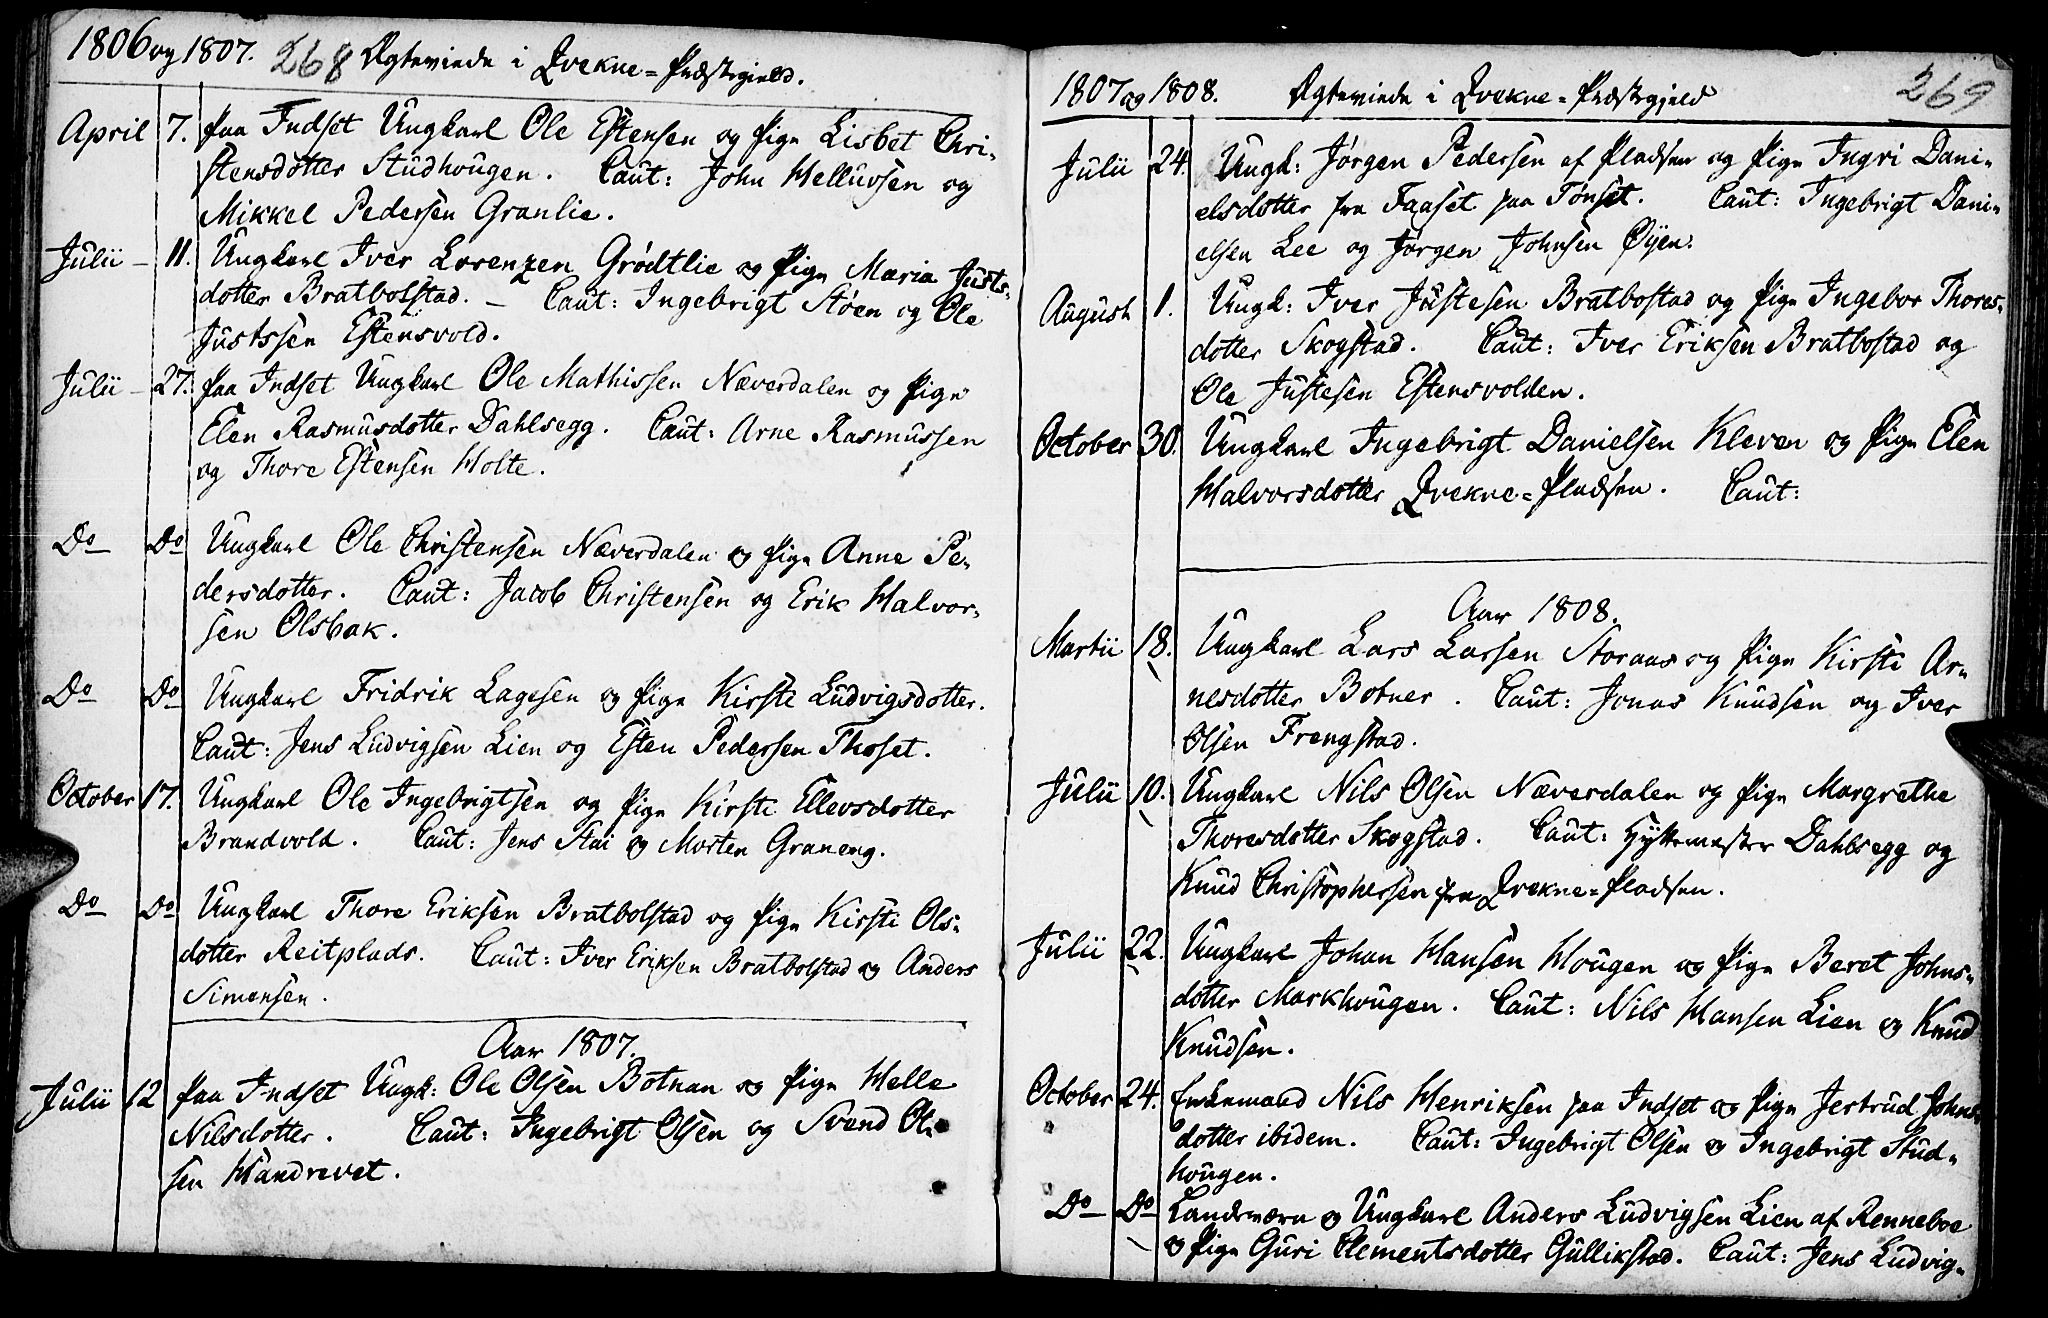 1806 og 1807. 268 Ægteviede i Qvekne=Præstegield.
April 7. Paa Indset Ungkarl Ole Estensen og Pige Lisbet Chri-
stensdotter Studhougen. Caut: John Helluvsen og
Mikkel Pedersen Granlie.
Julii – 11. Ungkarl Iver Lorenzen Grødtlie og Pige Maria Justs-
dotter Bratbolstad. – Caut: Ingebrigt Støen og Ole
Justssen Estensvold.
Julii – 27. Paa Indset Ungkarl Ole Mathissen Næverdalen og Pige
Elen Rasmusdotter Dahlsegg. Caut: Arne Rasmussen
og Thore Estensen Holte.
Do Do Ungkarl Ole Christensen Næverdalen og Pige Anne Pe-
dersdotter. Caut: Jacob Christensen og Erik Halvor-
sen Olsbak.
Do Do Ungkarl Fridrik Lagesen og Pige Kirste Ludvigsdotter.
Caut: Jens Ludvigsen Lien og Esten Pedersen Thoset.
October 17. Ungkarl Ole Ingebrigtsen og Pige Kirsti Ellevsdotter
Brandvold. Caut: Jens Stai og Morten Graneng.
Do Do Ungkarl Thore Eriksen Bratbolstad og Pige Kirsti Ols-
dotter Reitplads. Caut: Iver Eriksen Bratbolstad og Anders
Simensen.
Aar 1807.
Julii 12 Paa Indset Ungk: Ole Olsen Botnan og Pige Helle
Nilsdotter. Caut: Ingebrigt Olsen og Svend Ol-
sen Handrevet.
1807 og 1808. Ægteviede i Qvekne=Præstegjeld 269
Julii 24. Ungk: Jørgen Pedersen af Pladsen og Pige Ingri Dani-
elsdotter fra Faaset paa Tønset. Caut: Ingebrigt Dani-
elsen Lee og Jørgen Johnsen Øyen.
August 1. Ungk: Iver Justesen Bratbostad og Pige Ingebor Thores-
dotter Skogstad. Caut: Iver Eriksen Bratbostad og
Ole Justesen Estensvolden.
October 30. Ungkarl Ingebrigt Danielsen Kleven og Pige Elen
Halvorsdotter Qvekne=Pladsen. Caut:
Aar 1808.
Martii 18. Ungkarl Lars Larsen Storaas og Pige Kirsti Ar-
nesdotter Botner. Caut: Jonas Knudsen og Iver
Olsen Frengstad.
Julii 10. Ungkarl Nils Olsen Næverdalen og Pige Margrethe
Thoresdotter Skogstad. Caut: Hyttemester Dahlsegg og
Knud Christophersen fra Qvekne=Pladsen.
Julii 22. Ungkarl Johan Hansen Hougen og Pige Beret Johns-
dotter Markhougen. Caut: Nils Hansen Lien og Knud
Knudsen.
October 24. Enkemand Nils Henriksen paa Indset og Pige Jertrud Johns-
dotter ibidem. Caut: Ingebrigt Olsen og Ingebrigt Stud-
hougen.
Do Do Landeværn og Ungkarl Anders Ludvigsen Lien af Renneboe
og Pige Guri Clementsdotter Gullikstad. Caut: Jens Ludvig-